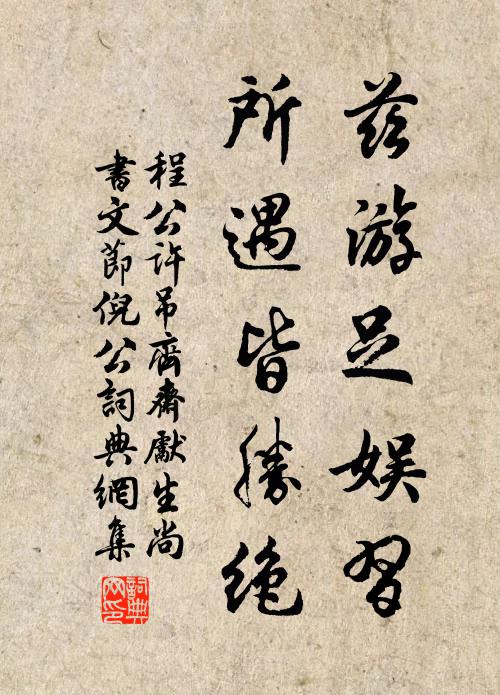 茲游足娛習
所遇皆勝絶
程公許吊齊齋獻生尚
書文節倪公詞典網集
詞典
网印